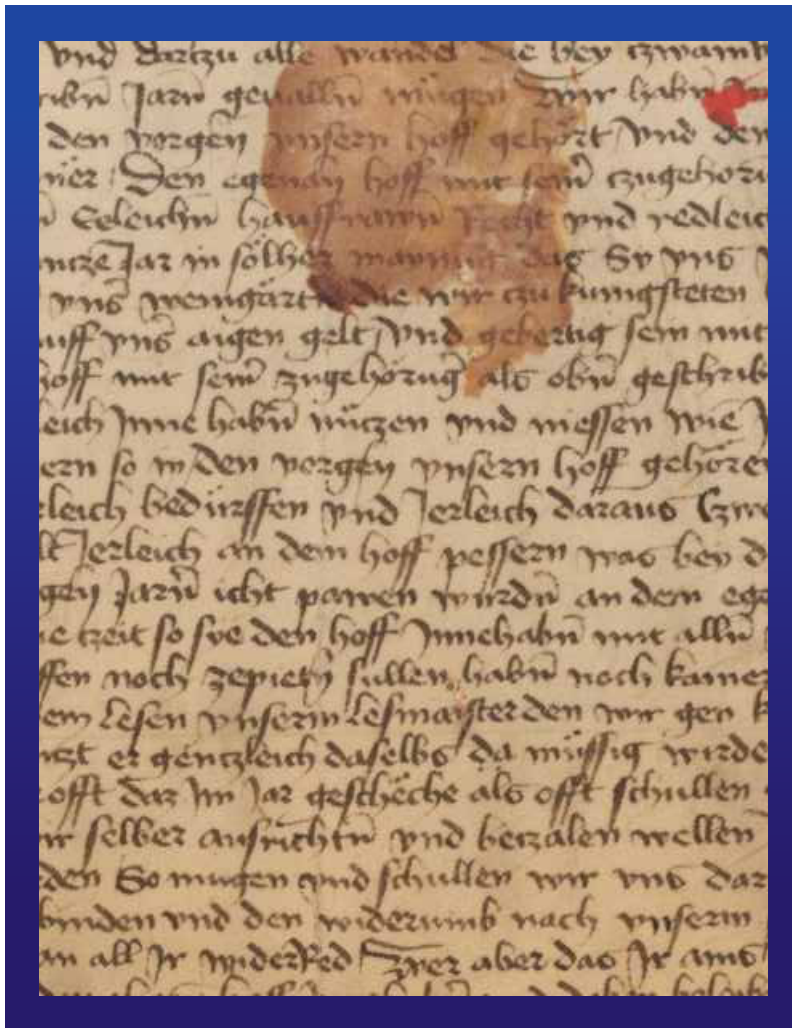 vnd dartzu alle wandel die bey tzwaintz
ribn Jarn geuallen mügen wir habn
den vorgen vnsern hoff gehört vnd den
Den egenan hoff mit seinē czugehöru
Eeleichn hausfrawn Recht vnd redleic
ntze Jar in sölher maynug das Sy vns
vns weingärtn die wir czu kunigsteten
auff vns aigen gelt vnd gebertig sein mit
hoff mit seinē zugehörug als obn geschrib
leich Inne habn nützen vnd niessen wie
ern so in den vorgen vnsern hoff gehören
rleich bedürffen vnd Jerleich daraus
lt Jerleich an dem hoff pessern was bey d
gen Jarn icht pawen würdn an dem ege
ie zeit so sye den hoff Innehabn mit alln
ffen noch zepietn sullen habn noch kamer
em Lesen vnserm Lesmaister den wir gen k
nzt er gentzleich daselbs da müssig wirde
offt daz Im Jar geschëche als offt schullen
ir selber ausrichtn vnd betzalen wellen
den So mugen vnd schullen wir vns dar
binden vnd den widerumb nach vnserm
an all Ir widerRed Wer aber das Ir ains